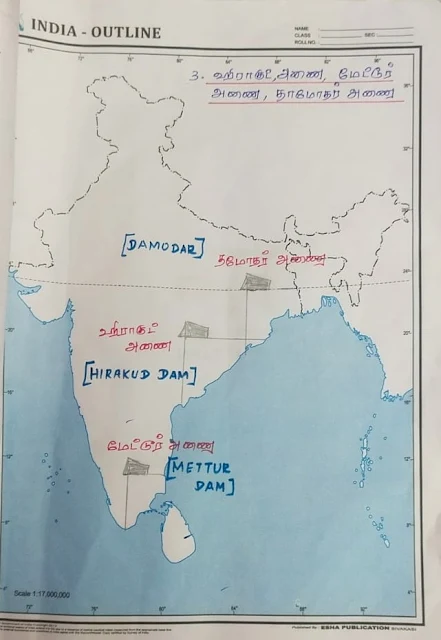 INDIA - OUTLINE
NAME
CLASS SEC
ROLL NO.
3. ஹிராகுட் அணை, மேட்டூர்
அணை, தாமோதர் அணை
[DAMODAR]
தமோதர் அணை
ஹிராகுட்
அணை
[HIRAKUD DAM]
மேட்டூர் அணை
[METTUR
DAM]
Scale 1:17,000,000
Published By: ESHA PUBLICATION SIVAKASI